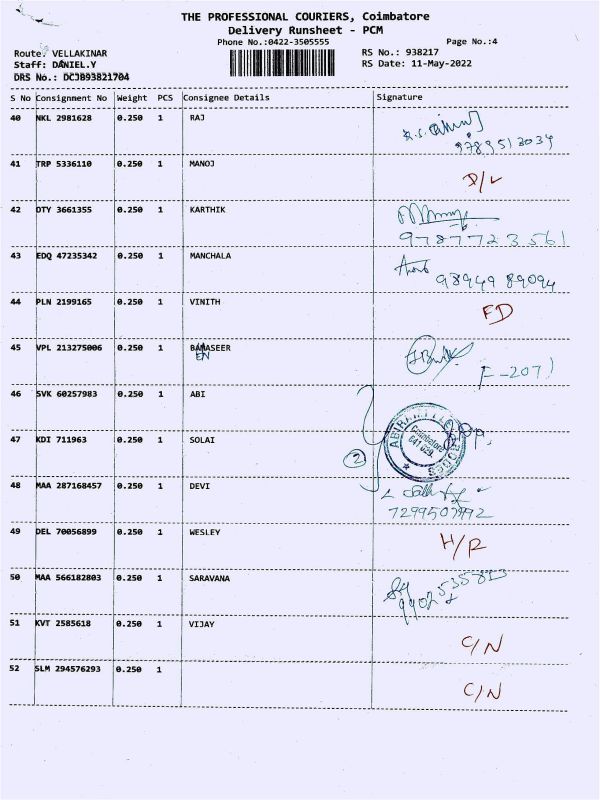 THE PROFESSIONAL COURIERS, Coimbatore
Delivery Runsheet - PCM
Phone No.:0422-3505555
Page No.:4
Route: VELLAKINAR
RS No.: 938217
Staff: DANIEL.Y
RS Date: 11-May-2022
DRS No.: DCJB93821704
S No Consignment No Weight PCS Consignee Details Signature
40 NKL 2981628 0.250 1 RAJ
9789513039
41 TRP 5336110 0.250 1 MANOJ D/L
42 OTY 3661355 0.250 1 KARTHIK
9787723561
43 EDQ 47235342 0.250 1 MANCHALA
98949 89094
44 PLN 2199165 0.250 1 VINITH FD
45 VPL 213275006 0.250 1
EN
F-207
46 SVK 60257983 0.250 1 ABI
47 KDI 711963 0.250 1 SOLAI
2
Coimbatore
48 MAA 287168457 0.250 1 DEVI
7299507992
49 DEL 70056899 0.250 1 WESLEY H/R
50 MAA 566182803 0.250 1 SARAVANA
51 KVT 2585618 0.250 1 VIJAY C/N
52 SLM 294576293 0.250 1 C/N